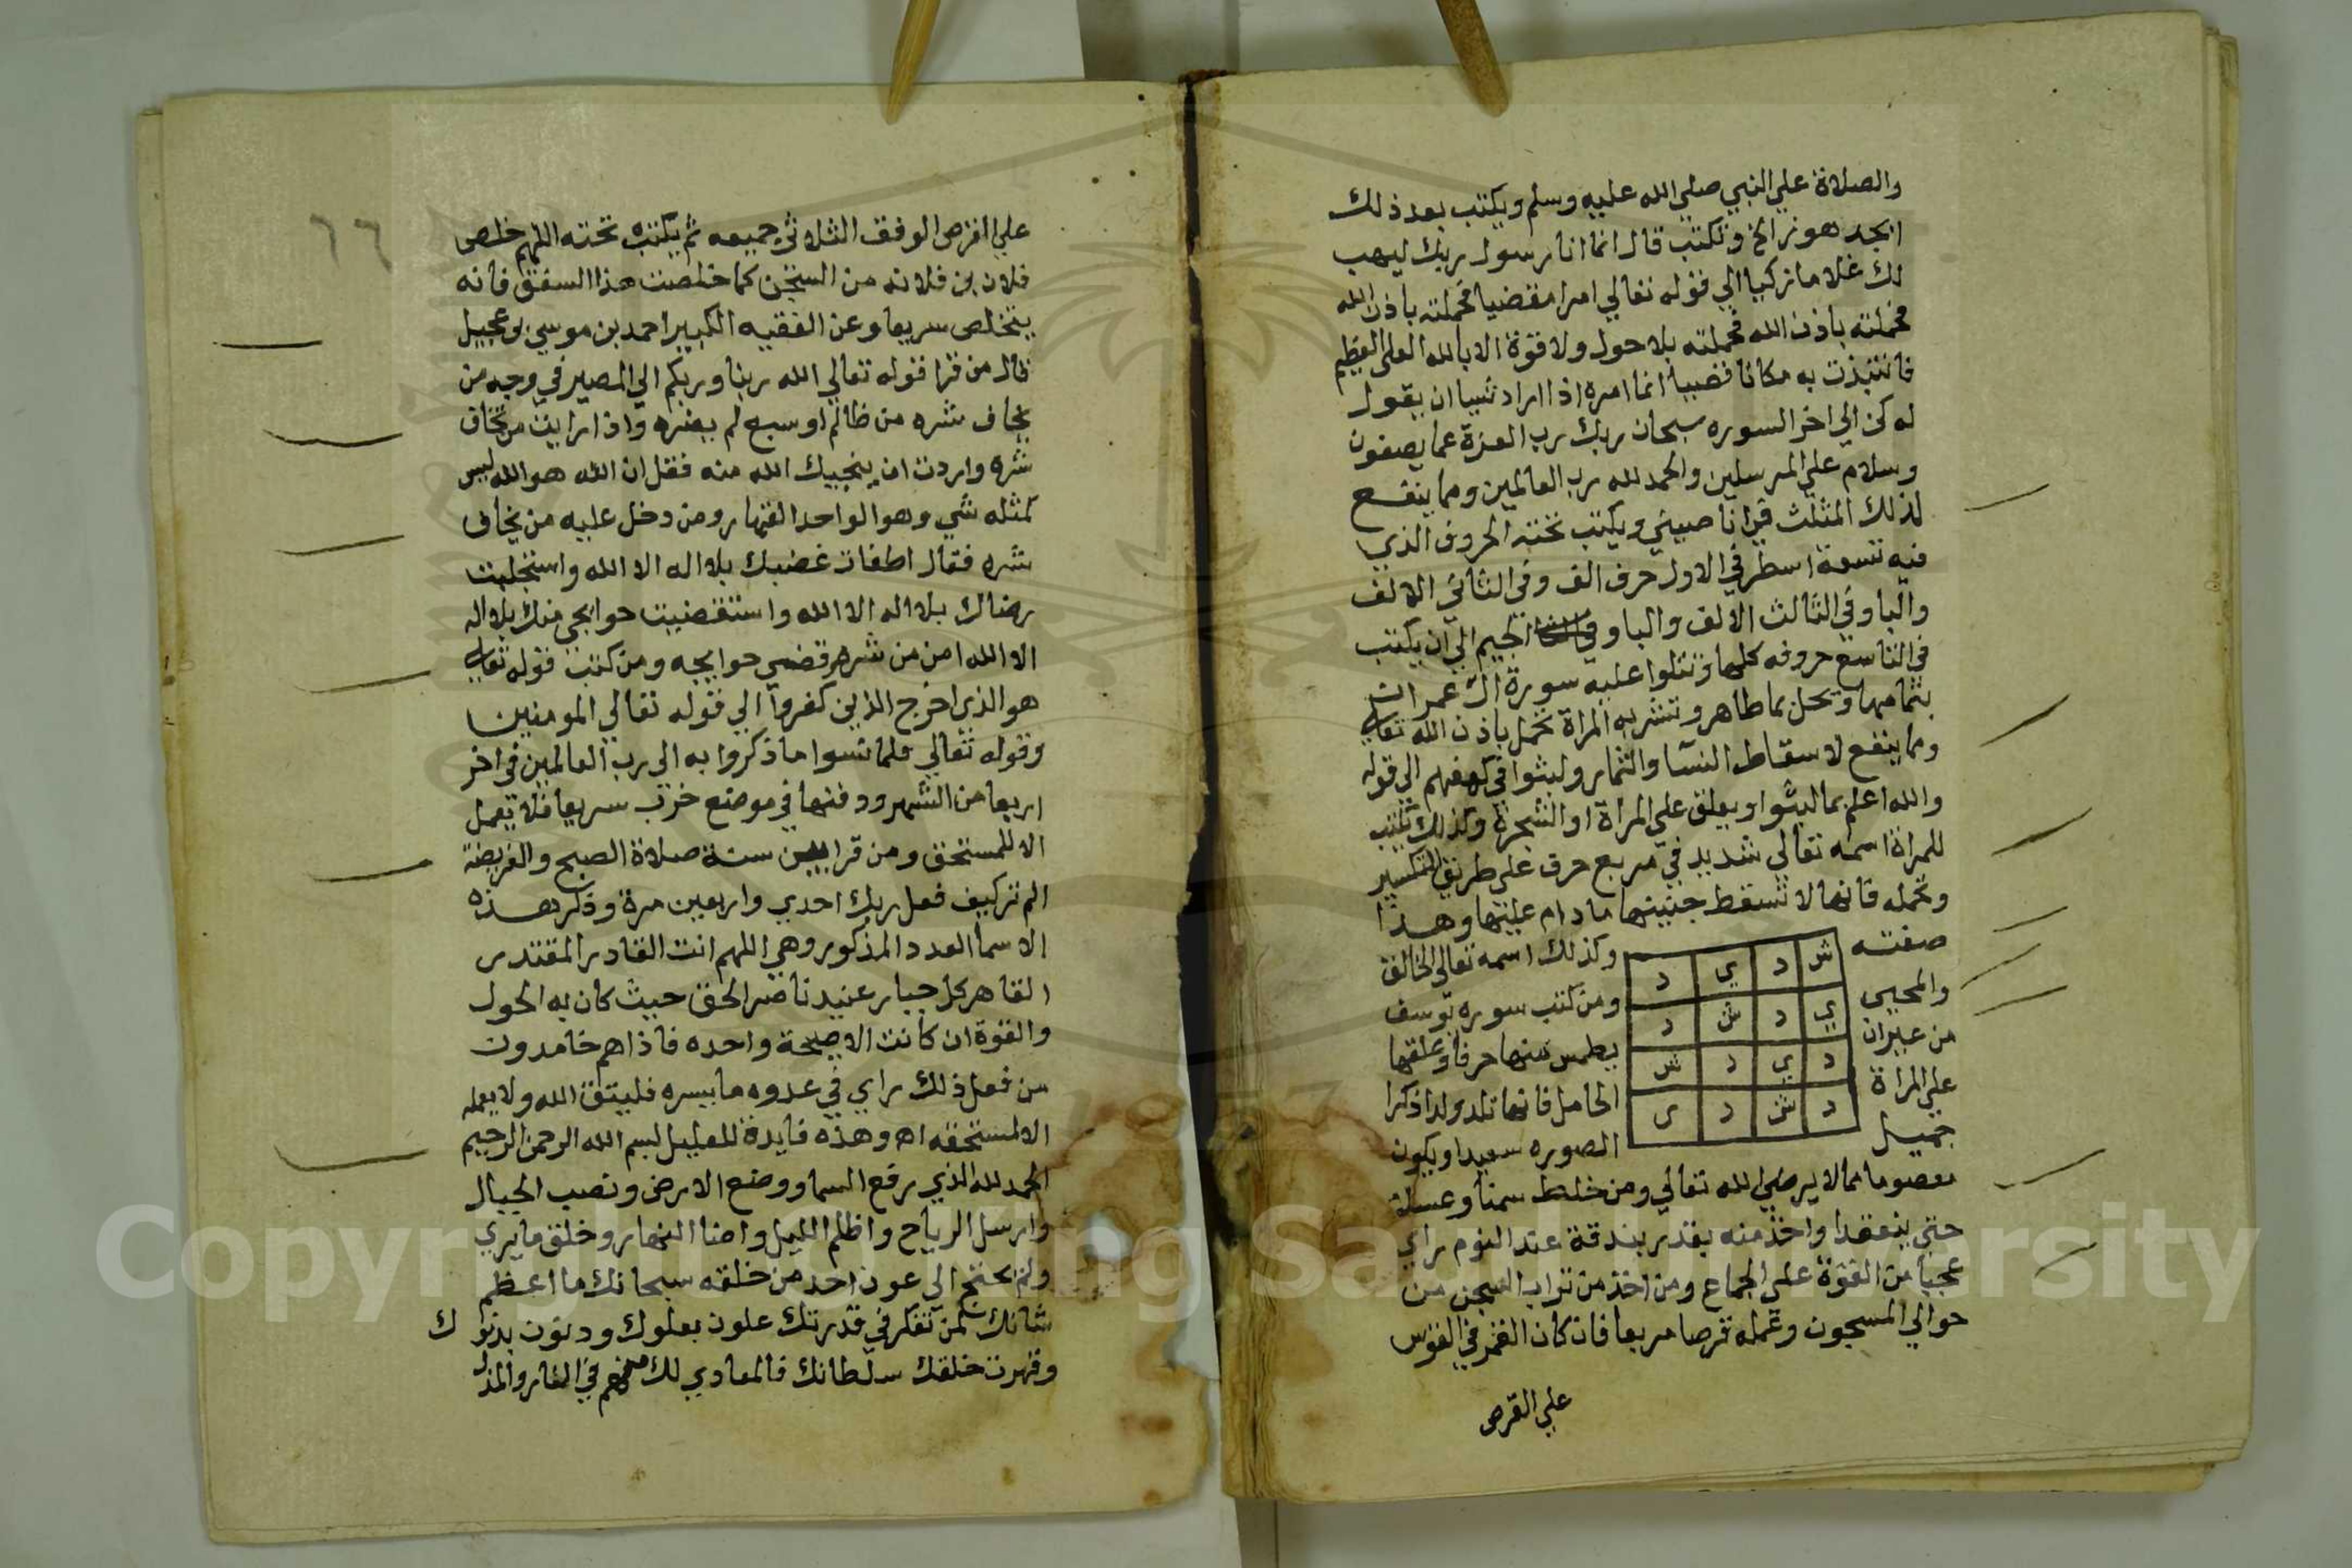 والصلاة علي النبي صلي الله عليه وسلم ويكتب بعد ذلك
ابجد هوز الخ وتكتب قال انما انا رسول ربك ليهب
لك غلاما زكيا الي قوله تعالي امرا مقضيا فحملته باذن الله
فحملته باذن الله فحملته بلا حول ولا قوة الا بالله العلي العظيم
فانتبذت به مكانا قصيا انما امره اذا اراد شيا ان يقول
له كن الي اخر السوره سبحان ربك رب العزة عما يصفون
وسلام علي المرسلين والحمد لله رب العالمين ومما ينفع
لذلك المثلث في انا صيني ويكتب تحته الحروف الذي
فيه تسعة اسطر في الاول حرف الف وفي الثاني الالف
والبا وفي الثالث الالف والبا و الجيم الي ان يكتب
في التاسع حروفه كلها وتتلوا عليه سورة ال عمران
بتمامها ويحل بما طاهر وتشربه المراة تحمل باذن الله تعالي
ومما ينفع لاسقاط النسا والثمار ولبثوا في كهفهم الي قوله
والله اعلم بما لبثوا ويعلق علي المراة او الشجرة وكذلك تكتب
للمراة اسمه تعالي شديد في مربع حرف علي طريق التكسير
وتحمله فانها لا تسقط جنينها ما دام عليها وهذا
صفته
ش د ي د
ي د ش د
د ي د ش
د ش د ي
وكذلك اسمه تعالي الخالق
والمحيي ومن كتب سوره يوسف
من غير ان يطمس منها حرفا وعلقها
علي المراة الحامل فانها تلد ولدا ذكرا
جميل الصوره سعيدا ويكون
معصوما مما لا يرضي الله تعالي ومن خلط سمنا وعسلا
حتي ينعقدا واخذ منه بقدر بندقة عند النوم راي
عجبا من القوة علي الجماع ومن اخذ من تراب السجن من
حوالي المسجون وعمله قرصا مربعا فان كان القمر في القوس
علي القرص
٦٦
علي القرص الوفق الثلاثي جميعه ثم يكتب تحته اللهم خلص
فلان بن فلانه من السجن كما خلصت هذا فانه
يتخلص سريعا وعن الفقيه الكبير احمد بن موسي بو عجيل
قال من قرا قوله تعالي الله ربنا وربكم الي المصير في وجه من
يخاف شره من ظالم او سبع لم يضره واذا رايت من تخاف
شره واردت ان ينجيك الله منه فقل ان الله هو الله ليس
كمثله شي وهو الواحد القهار ومن دخل عليه من يخاف
شره فقال اطفات غضبك بلا اله الا الله واستجلبت
رضاك بلا اله الا الله واستقضيت حوايجي منك بلا اله
الا الله امن من شره وقضي حوايجه ومن كتب قوله تعالي
هو الذي اخرج الذين كفروا الي قوله تعالي المومنين
وقوله تعالي فلما نسوا ما ذكروا به الي رب العالمين في اخر
اربعا من الشهر ودفنها في موضع خرب سريعا فلا يعمل
الا للمستحق ومن قرا بين سنة صلاة الصبح والفريضة
الم تر كيف فعل ربك احدي واربعين مرة وذكر هذه
الاسما العدد المذكور وهي اللهم انت القادر المقتدر
القاهر كل جبار عنيد ناصر الحق حيث كان به الحول
والقوة ان كانت الا صيحة واحده فاذا هم خامدون
من فعل ذلك راي في عدوه ما يسره فليتق الله ولا يعمله
الا لمستحقه اه وهذه فايدة للعليل بسم الله الرحمن الرحيم
الحمد لله الذي رفع السما ووضع الارض ونصب الجبال
وارسل الرياح واظلم الليل واضا النهار وخلق ما يري
ولم يحتج الي عون احد من خلقه سبحانك ما اعظم
شانك لمن تفكر في قدرتك علون بعلوك ودنون بدنوك
وقهرت خلقك سلطانك فالمعادي لك منهم في النار والمذل
Copyright © King Saud University
1957